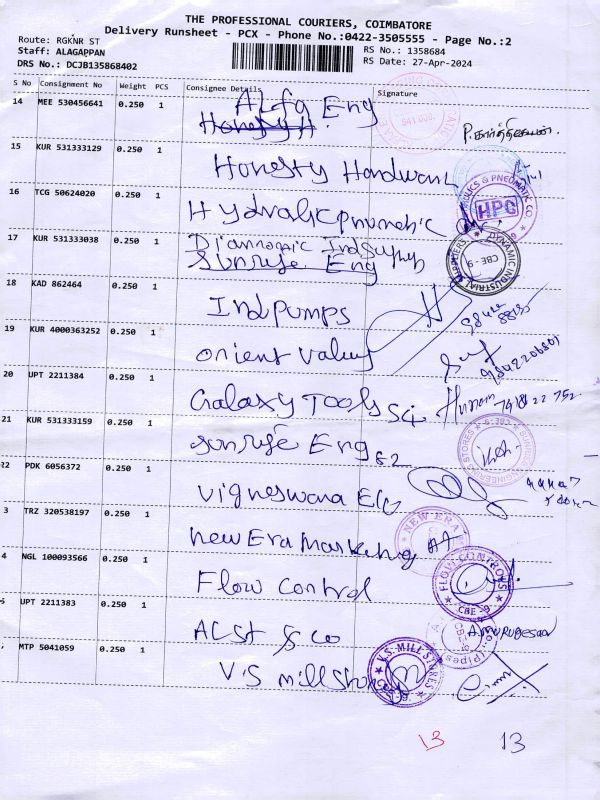 THE PROFESSIONAL COURIERS, COIMBATORE
Delivery Runsheet - PCX - Phone No.:0422-3505555 - Page No.:2
Route: RGKNR ST
Staff: ALAGAPPAN
RS No.: 1358684
DRS No.: DCJB135868402
RS Date: 27-Apr-2024
S No Consignment No Weight PCS Consignee Details Signature
14 MEE 530456641 0.250 1 ALfa Eng
P.கார்த்திகேயன்.
15 KUR 531333129 0.250 1 Honesty Hardware
16 TCG 50624020 0.250 1 Hydralic pnumetic
HPC
17 KUR 531333038 0.250 1
Sunrise Eng
DYNAMIC INDUSTRIAL SUPPLIERS
CBE - 9
18 KAD 862464 0.250 1 Ind pumps
19 KUR 4000363252 0.250 1 orient valves
20 UPT 2211384 0.250 1 Galaxy Tools
21 KUR 531333159 0.250 1 Sunrise Eng
22 PDK 6056372 0.250 1 vigneswara
3 TRZ 320538197 0.250 1 new Era marketing
NEW ERA
4 NGL 100093566 0.250 1 Flow control
FLOW CONTROLS
CBE -9
UPT 2211383 0.250 1 & co
A.MURUGESAN
MTP 5041059 0.250 1 V.S mill Stores
V.S. MILL STORES
13 13